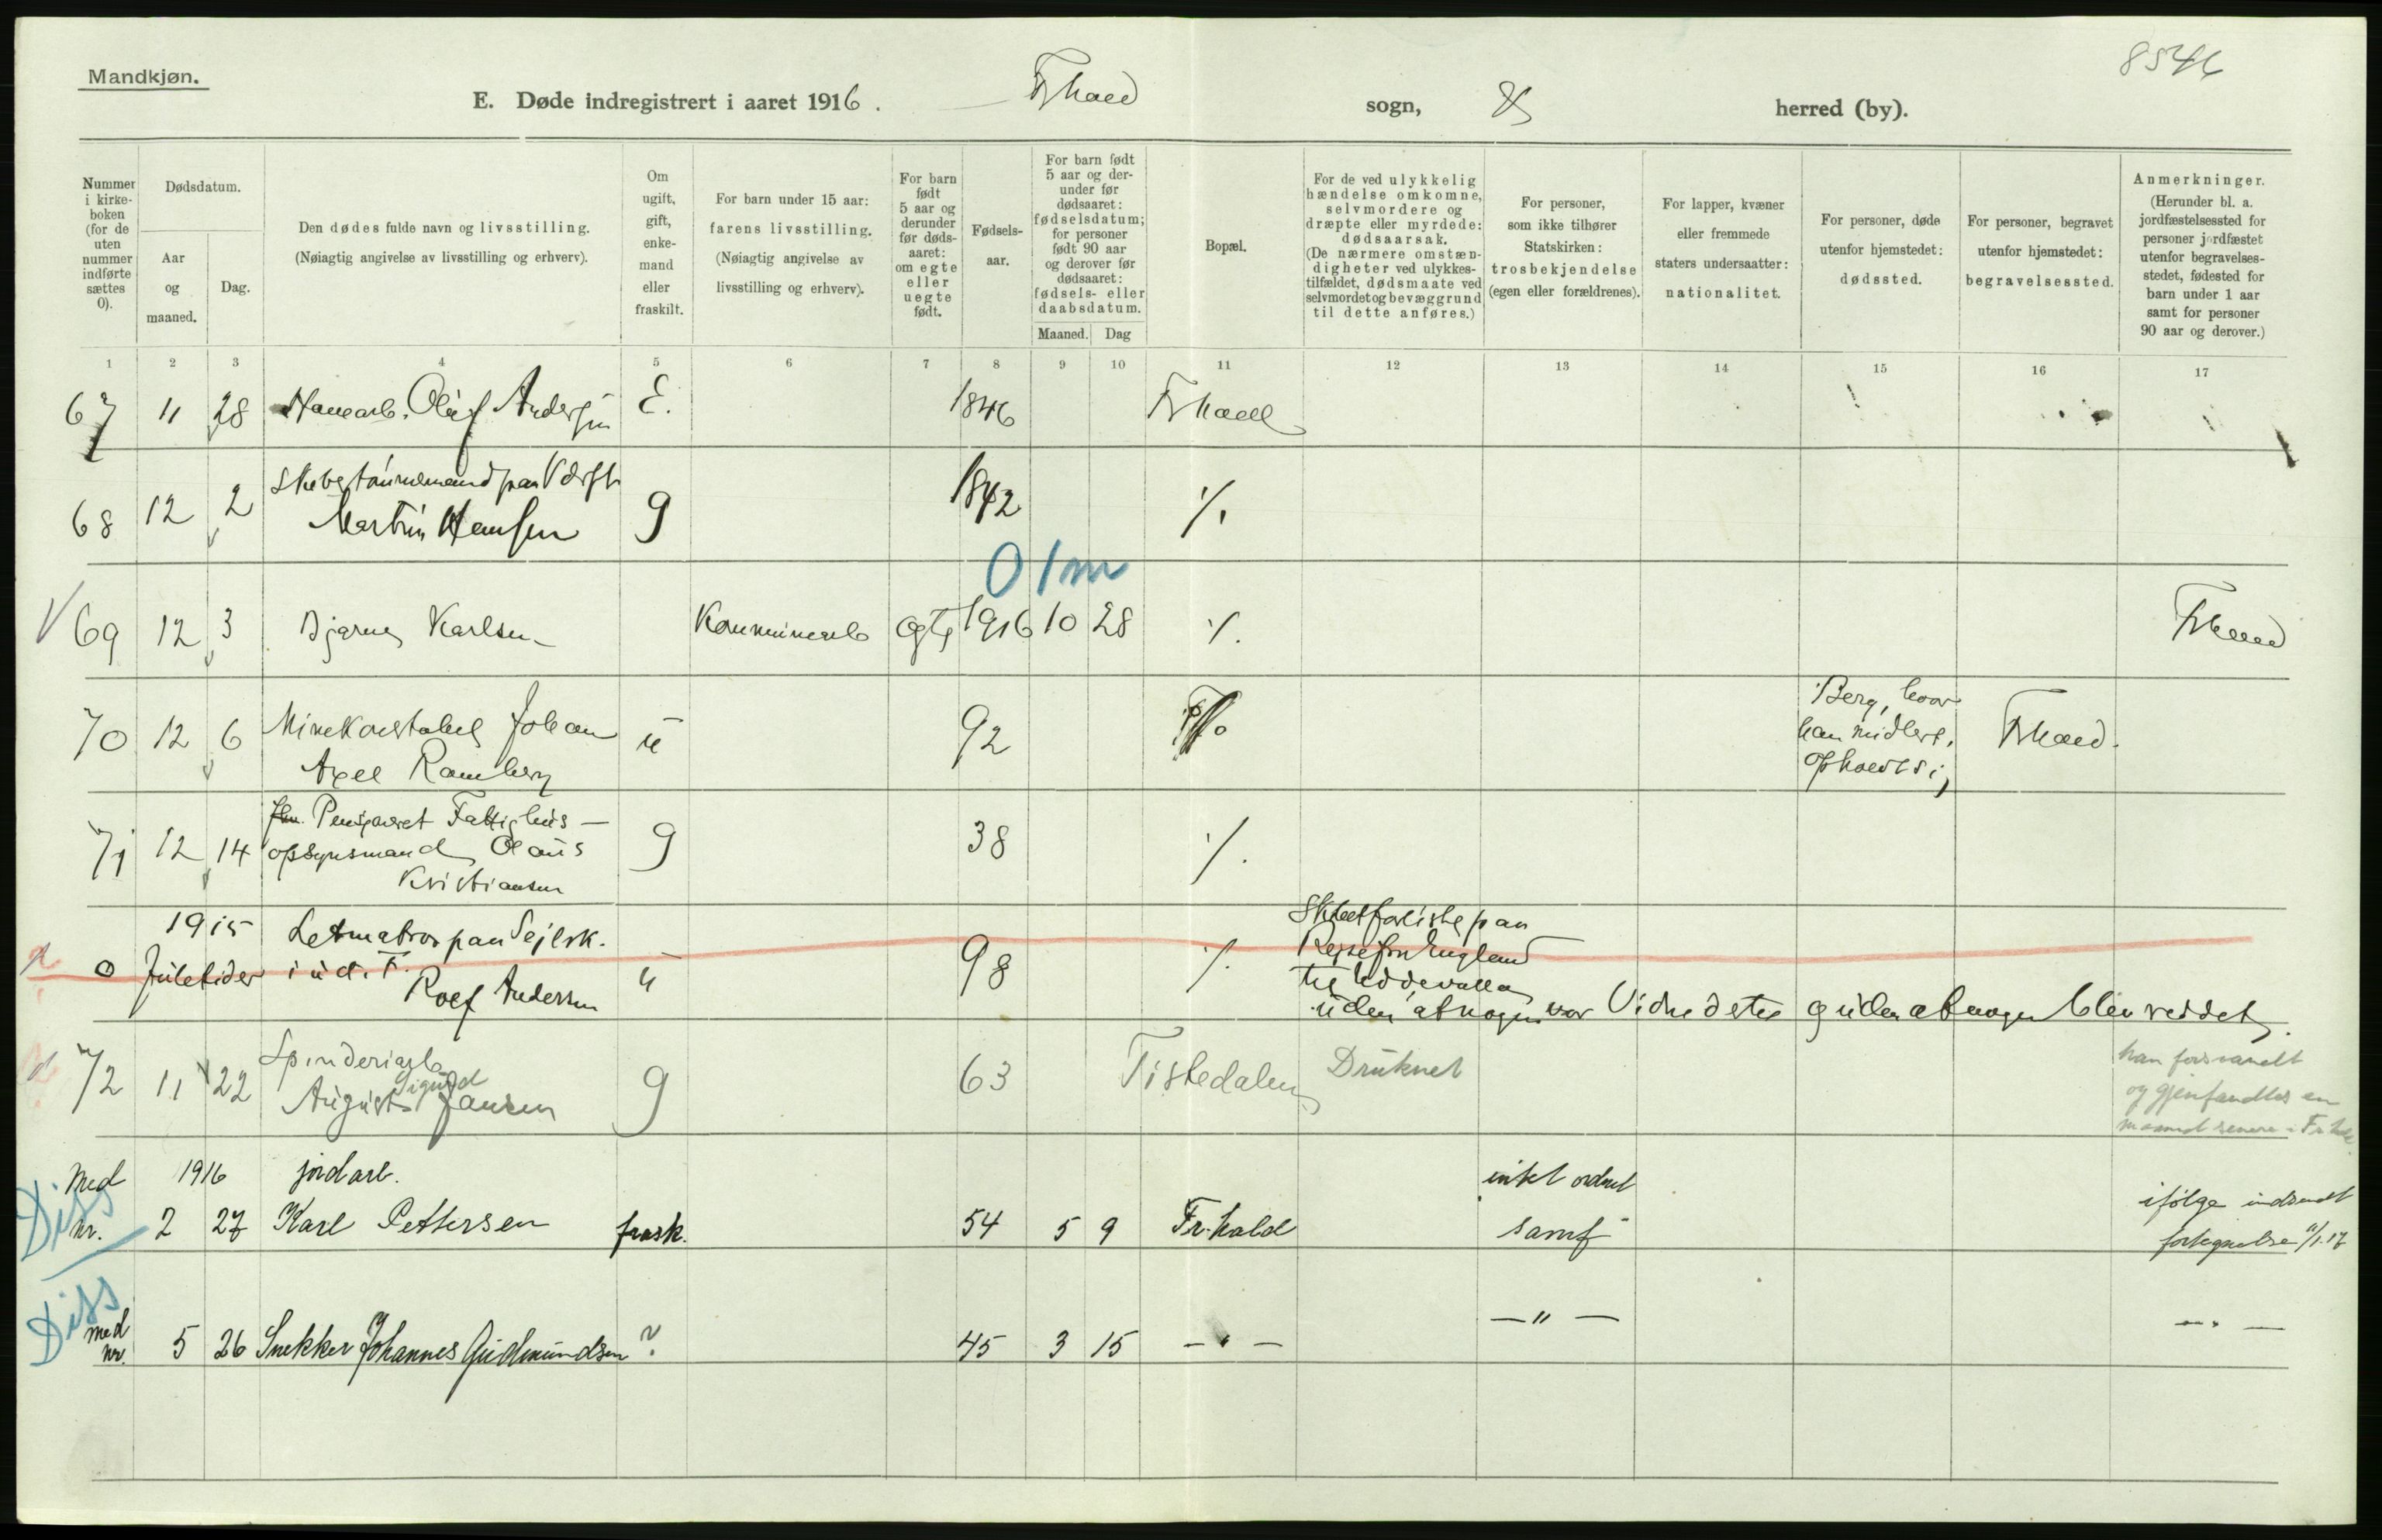 8546
Mandkjøn.
E. Døde indregistrert i aaret 1916. Frhald sogn, herred (by).
Nummer i kirke-boken (for de uten nummer indførte sættes 0).
Dødsdatum.
Aar og maaned.
Dag.
Den dødes fulde navn og livsstilling.
(Nøiagtig angivelse av livsstilling og erhverv).
Om ugift, gift, enke-mand eller fraskilt.
For barn under 15 aar: farens livsstilling.
(Nøiagtig angivelse av livsstilling og erhverv).
For barn født 5 aar og derunder før døds-aaret: om egte eller uegte født.
Fødsels-aar.
For barn født 5 aar og der-under før dødsaaret: fødselsdatum; for personer født 90 aar og derover før dødsaaret: fødsels- eller daabsdatum.
Maaned. Dag
Bopæl.
For de ved ulykkelig hændelse omkomne, selvmordere og dræpte eller myrdede: dødsaarsak.
(De nærmere omstæn-digheter ved ulykkes-tilfældet, dødsmaate ved selvmordet og bevæggrund til dette anføres.)
For personer, som ikke tilhører Statskirken: trosbekjendelse (egen eller forældrenes).
For lapper, kvæner eller fremmede staters undersaatter: nationalitet.
For personer, døde utenfor hjemstedet: dødssted.
For personer, begravet utenfor hjemstedet: begravelsessted.
Anmerkninger.
(Herunder bl. a. jordfæstelsessted for personer jordfæstet utenfor begravelses-stedet, fødested for barn under 1 aar samt for personer 90 aar og derover.)
1 2 3 4 5 6 7 8 9 10 11 12 13 14 15 16 17
67 11 28 Oluf Andersen E. 1846 Frhald
Martin Hansen
68 12 2 g 1842 ./.
0 1 m
69 12 3 Bjarne Karlsen Kommunearb egte 1916 10 28 ./. Frhald
Berg, hvor
70 12 6 Minekonstabel Johan u 92 han midlert. Frhald.
Axel Ramberg opholdt sig
Pensjoneret Fattighus-
71 12 14 opsynsmand Olaus g 38 ./.
Kristiansen
1915 Letmatros paa Sejlsk. Skibet forliste paa
0 Juletider i ud. F. u 98 ./. Rejse fra England
Rolf Andersen til Uddevalla
uden at nogen var Vidne dertil g uden at nogen blev reddet.
Spinderiarb han forsvandt
72 11 22 Sigurd g 63 Tistedalen Druknet og gjenfandtes en
August Jansen maaned senere i Fr.hald
Med 1916 jordarb. intet ordnet ifølge indsendt
Diss nr. 2 27 Karl Pettersen frask. 54 5 9 Fr.hald samf fortegnelse 11/1.17
Diss med - " - - " -
nr. 5 26 Snekker Johannes Gudmundsen ? 45 3 15 - " -